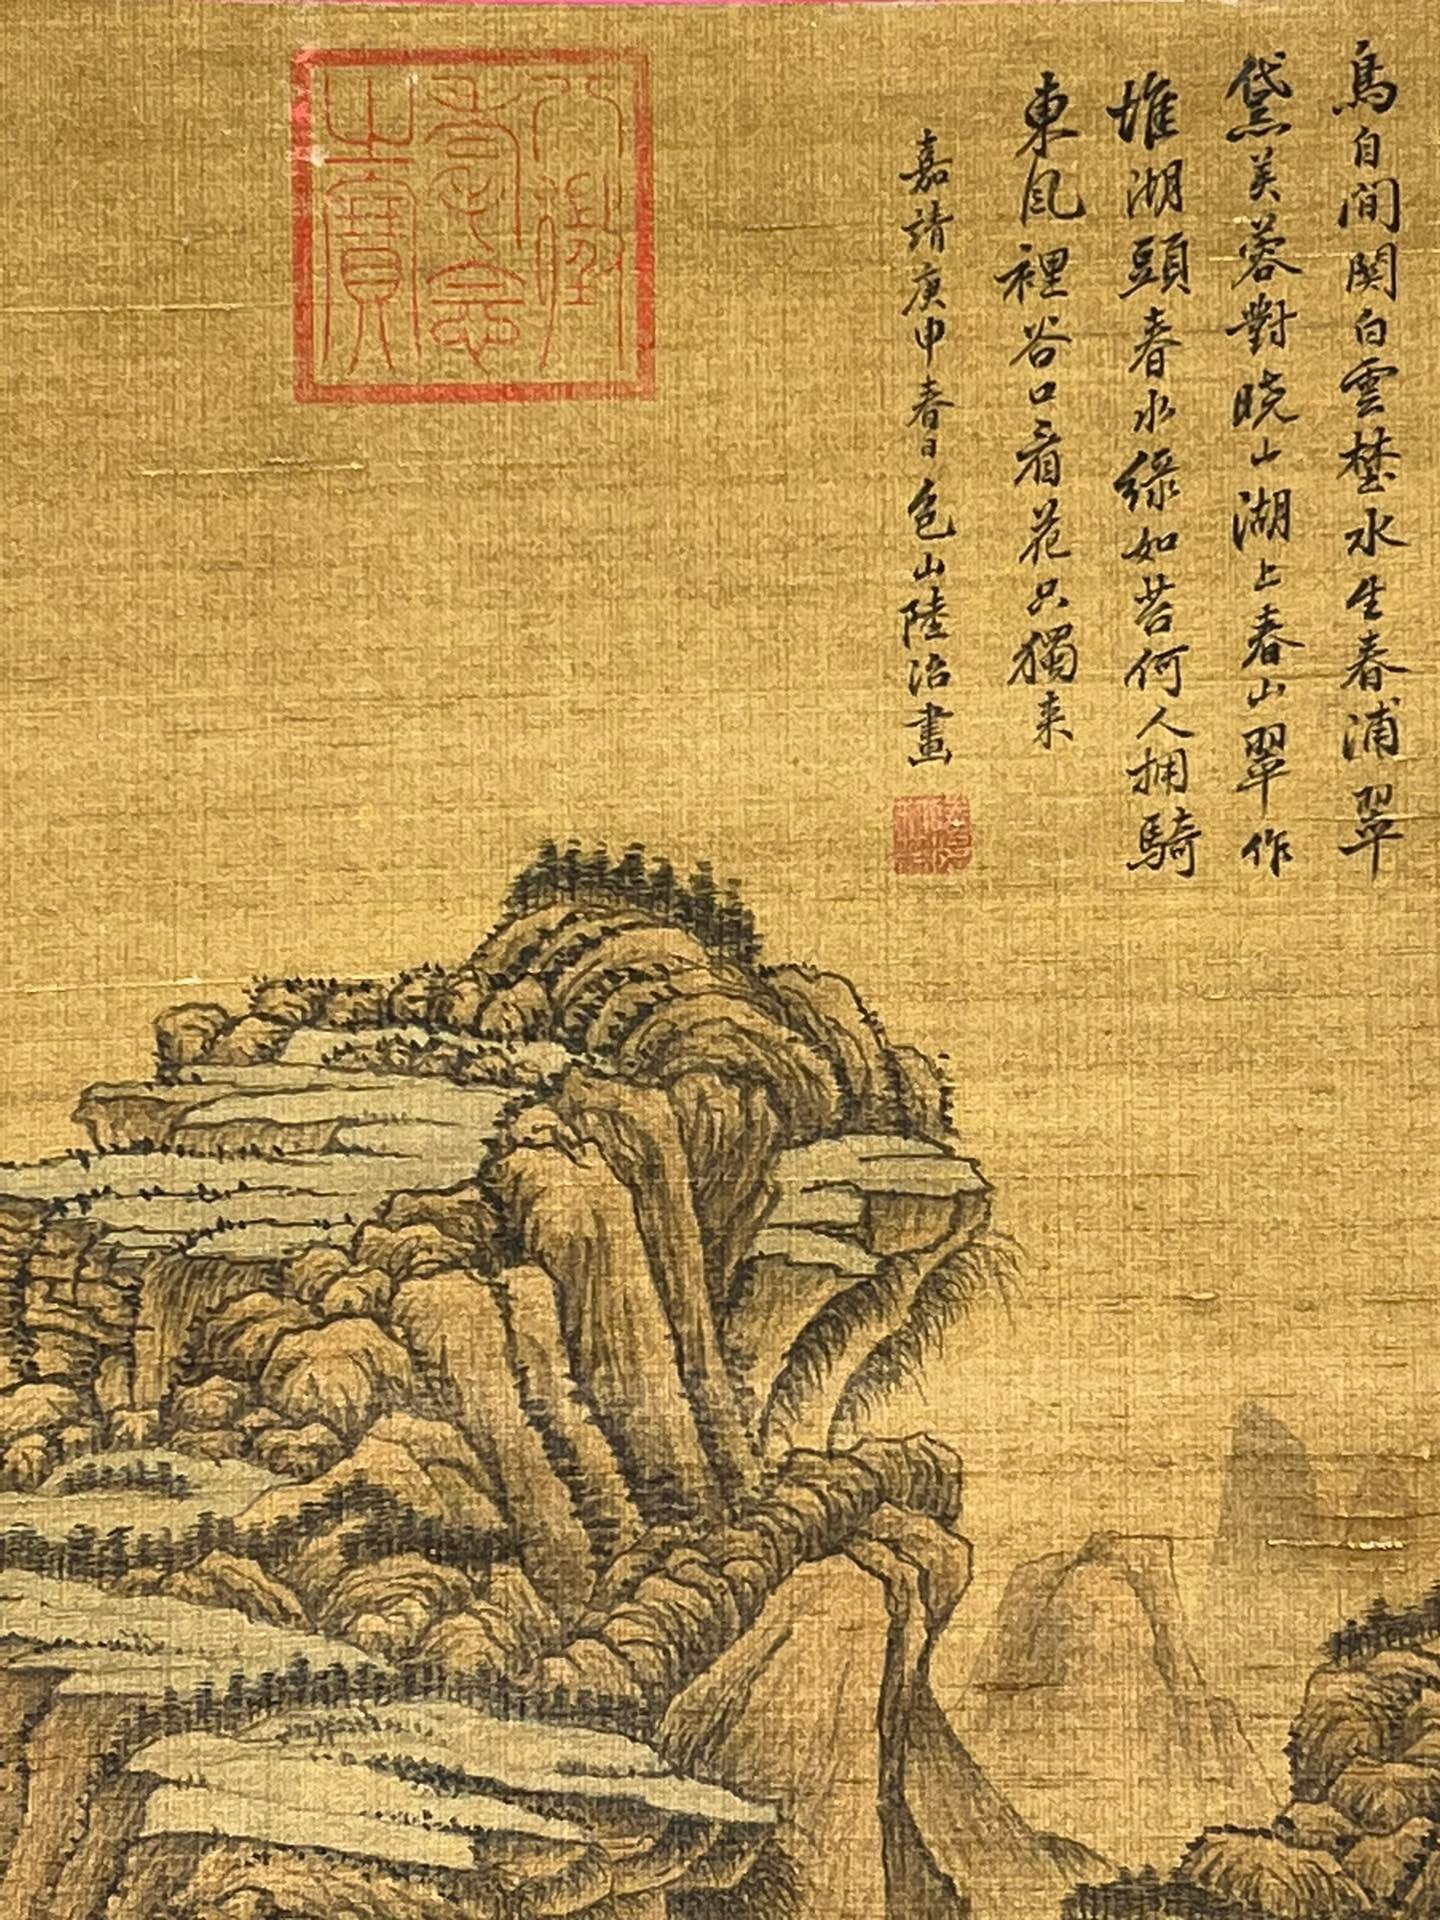 鳥自間関白雲埜水生春浦翠
黛芙蓉對晓山湖上春山翠作
堆湖頭春水綠如苔何人拥騎
東風裡谷口看花只獨来
嘉靖庚申春日包山陸治畫
八徵耄念之寶